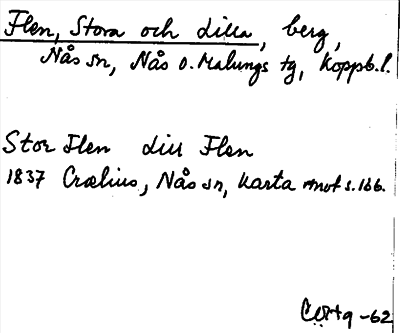 Flen, Stora och Lilla, berg,
Nås sn, Nås o. Malungs tg, Koppb.l.
Stor Flen Lill Flen
1837 Crælius, Nås sn, Karta mot s. 166.
-62